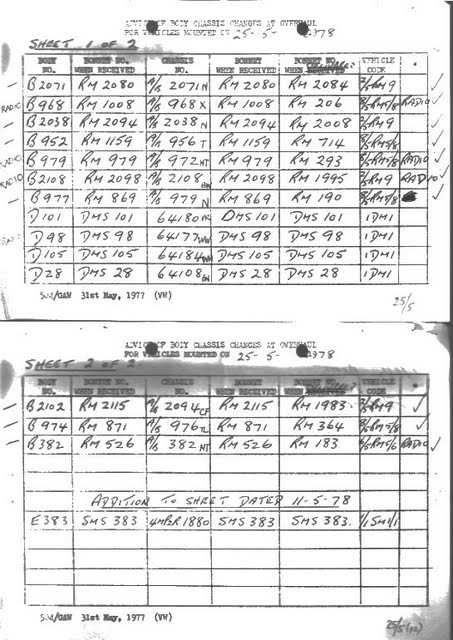 ADVICE OF BODY CHASSIS CHANGES AT OVERHAUL
FOR VEHICLES MOUNTED ON 25-5-1978
SHEET 1 OF 2
BODY NO. BONNET NO. WHEN RECEIVED CHASSIS NO. BONNET WHEN RECEIVED BONNET NO. VEHICLE CODE
B2071 RM 2080 A/S 2071N RM 2080 RM 2084 2/5RM9 ✓
RADIO B968 RM 1008 A/S 968X RM 1008 RM 206 5/5RM5/8 RADIO ✓
B2038 RM 2094 A/S 2038N RM 2094 RM 2008 2/5RM9 ✓
B952 RM 1159 A/S 956T RM 1159 RM 714 5/5RM5/8 ✓
RADIO B979 RM 979 A/S 972NT RM 979 RM 293 5/5RM5/8 RADIO ✓
RADIO B2108 RM 2098 A/S 2108 RM 2098 RM 1995 2/5RM9 RADIO ✓
B977 RM 869 A/S 979N RM 869 RM 190 5/5RM5/8 ✓
D101 DMS 101 64180 DMS 101 DMS 101 1DM1
D98 DMS 98 64177 DMS 98 DMS 98 1DM1
D105 DMS 105 64184 DMS 105 DMS 105 1DM1
D28 DMS 28 64108 DMS 28 DMS 28 1DM1
31st May, 1977 (VM)
25/5
ADVICE OF BODY CHASSIS CHANGES AT OVERHAUL
FOR VEHICLES MOUNTED ON 25-5-1978
SHEET 2 OF 2
BODY NO. BONNET NO. WHEN RECEIVED CHASSIS NO. BONNET WHEN RECEIVED BONNET NO. VEHICLE CODE
B2102 RM 2115 A/S 2094CF RM 2115 RM 1983 2/5RM9 ✓
B974 RM 871 A/S 976TL RM 871 RM 364 5/5RM5/8 ✓
B382 RM 526 A/S 382NT RM 526 RM 183 5/5RM5/6 RADIO ✓
ADDITION TO SHEET DATED 11-5-78
E383 SMS 383 4MP2R1880 SMS 383 SMS 383. 1/1SM1/1
31st May, 1977 (VM)
25/5